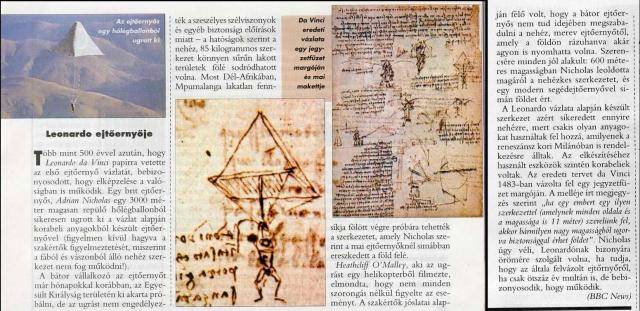 Az ejtőernyős
egy hőlégballonból
ugrott ki
Leonardo ejtőernyője
Több mint 500 évvel azután, hogy
Leonardo da Vinci papírra vetette
az első ejtőernyő vázlatát, bebizo-
nyosodott, hogy elképzelése a való-
ságban is működik. Egy brit ejtőer-
nyős, Adrian Nicholas egy 3000 mé-
ter magasan repülő hőlégballonból
sikeresen ugrott ki a vázlat alapján
korabeli anyagokból készült ejtőer-
nyővel (figyelmen kívül hagyva a
szakértők figyelmeztetését, miszerint
a fából és vászonból álló nehéz szer-
kezet nem fog működni!).
A bátor vállalkozó az ejtőernyőt
már hónapokkal korábban, az Egye-
sült Királyság területén ki akarta pró-
bálni, de az ugrást nem engedélyez-
ték a szeszélyes szélviszonyok
és egyéb biztonsági előírások
miatt – a hatóságok szerint a
nehéz, 85 kilogrammos szer-
kezet könnyen sűrűn lakott
területek fölé sodródhatott
volna. Most Dél-Afrikában,
Mpumalanga lakatlan fenn-
Da Vinci
eredeti
vázlata
egy jegy-
zetfüzet
margóján
és mai
makettje
síkja fölött végre próbára tehették
a szerkezetet, amely Nicholas sze-
rint a mai ejtőernyőknél simábban
ereszkedett a föld felé.
Heathcliff O'Malley, aki az ug-
rást egy helikopterből filmezte,
elmondta, hogy nem minden
szorongás nélkül figyelte az ese-
ményt. A szakértők jóslatai alap-
ján félő volt, hogy a bátor ejtőer-
nyős nem tud idejében megszaba-
dulni a nehéz, merev ejtőernyőtől,
amely a földön rázuhanva akár
agyon is nyomhatta volna. Szeren-
csére minden jól alakult: 600 méte-
res magasságban Nicholas leoldotta
magáról a nehézkes szerkezetet, és
egy modern segédejtőernyővel si-
mán földet ért.
A Leonardo vázlata alapján készült
szerkezet azért sikeredett ennyire
nehézre, mert csakis olyan anyago-
kat használtak fel hozzá, amilyenek a
reneszánsz kori Milánóban is rendel-
kezésre álltak. Az elkészítéséhez
használt eszközök szintén korabeliek
voltak. Az eredeti tervet da Vinci
1483-ban vázolta fel egy jegyzetfü-
zet margóján. A mellé írt megjegy-
zés szerint „ha egy embert egy ilyen
szerkezettel (amelynek minden oldala és
a magassága is 11 méter) szerelünk fel,
akkor bármilyen nagy magasságból ugor-
va biztonsággal érhet földet". Nicholas
úgy véli, Leonardónak bizonyára
örömére szolgált volna, ha tudja,
hogy az általa felvázolt ejtőernyőről,
ha csak ötszáz év multán is, de bebi-
zonyosodik, hogy működik.
(BBC News)